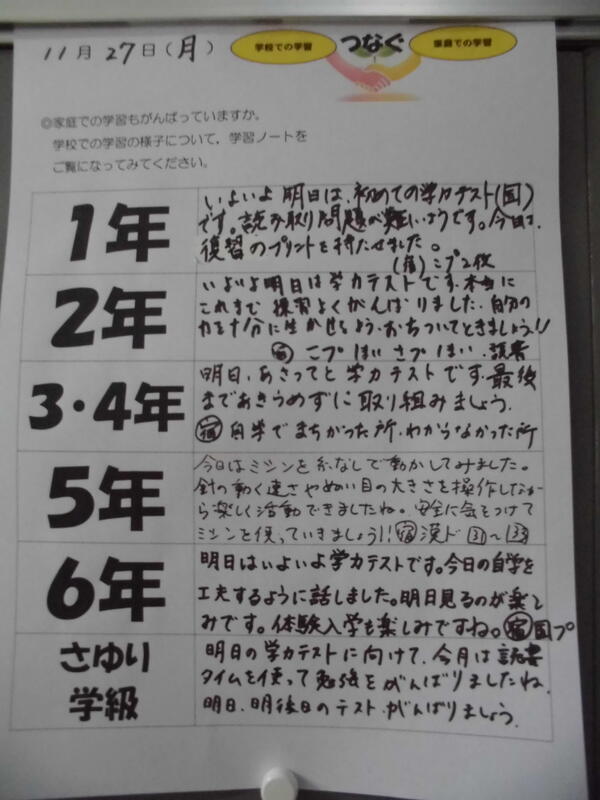 11月27日(月)
学校での学習
つなぐ
家庭での学習
◎家庭での学習もがんばっていますか。
学校での学習の様子について，学習ノートを
ご覧になってみてください。
1年
いよいよ明日は、初めての学力テスト(国)
です。読み取り問題が難しいようです。今日は、
復習のプリントを持たせました。
(宿)こプ2枚
2年
いよいよ明日は学力テストです。本当に
これまで練習よくがんばりました。自分の
力を十分に生かせるよう、おちついてときましょう!!
宿 こプ1まい さプ1まい、読書
3・4年
明日、あさってと学力テストです。最後
まであきらめずに取り組みましょう。
宿 自学でまちがった所、わからなかった所
5年
今日はミシンを糸なしで動かしてみました。
針の動く速さやぬい目の大きさを操作しなが
ら楽しく活動できましたね。安全に気をつけて
ミシンを使っていきましょう!! 宿 漢ド
6年
明日はいよいよ学力テストです。今日の自学を
工夫するように話しました。明日見るのが楽し
みです。体験入学も楽しみですね。宿国プ
さゆり
学級
明日の学力テストに向けて、今月は読書
タイムを使って勉強をがんばりましたね。
明日、明後日のテスト、がんばりましょう。